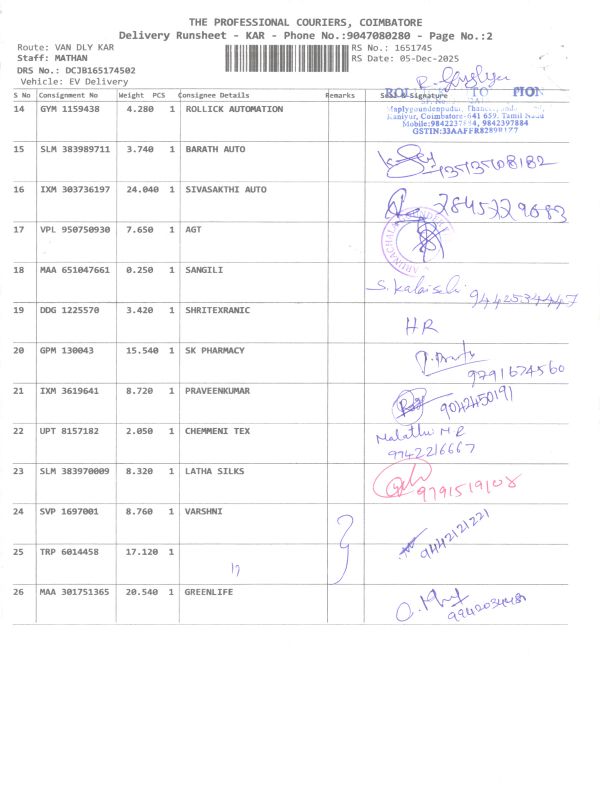 THE PROFESSIONAL COURIERS, COIMBATORE
Delivery Runsheet - KAR - Phone No.:9047080280 - Page No.:2
Route: VAN DLY KAR RS No.: 1651745
Staff: MATHAN RS Date: 05-Dec-2025
DRS No.: DCJB165174502
Vehicle: EV Delivery
S No Consignment No Weight PCS Consignee Details Remarks Seal & Signature
14 GYM 1159438 4.280 1 ROLLICK AUTOMATION
Kaniyur, Coimbatore-641 659. Tamil Nadu
Mobile:9842237884, 9842397884
15 SLM 383989711 3.740 1 BARATH AUTO
16 IXM 303736197 24.040 1 SIVASAKTHI AUTO
17 VPL 950750930 7.650 1 AGT
18 MAA 651047661 0.250 1 SANGILI
S. Kalaiselvi
9442534447
19 DDG 1225570 3.420 1 SHRITEXRANIC
HR
20 GPM 130043 15.540 1 SK PHARMACY
9791674560
21 IXM 3619641 8.720 1 PRAVEENKUMAR
9042450191
22 UPT 8157182 2.050 1 CHEMMENI TEX
Malathi M R
9742216667
23 SLM 383970009 8.320 1 LATHA SILKS
9791519108
24 SVP 1697001 8.760 1 VARSHNI
9442121221
25 TRP 6014458 17.120 1
26 MAA 301751365 20.540 1 GREENLIFE